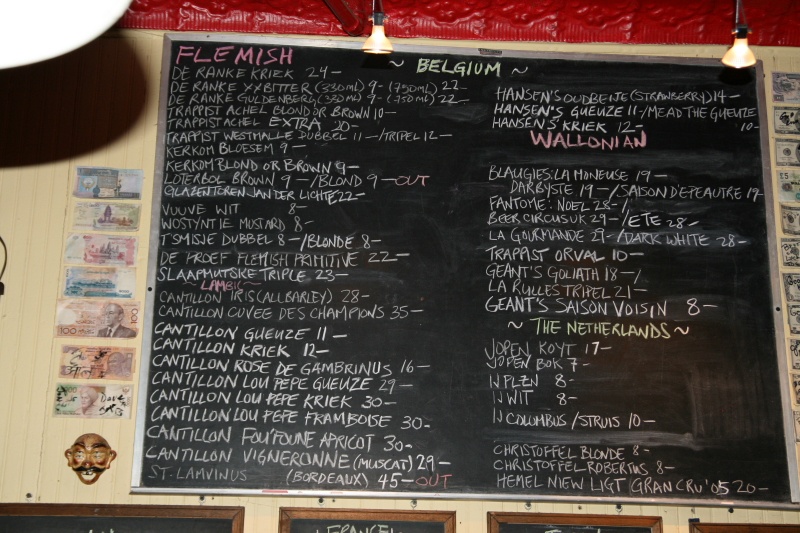 ~ BELGIUM ~
FLEMISH
DE RANKE KRIEK 24-
DE RANKE XXBITTER (330ML) 9- (750ML) 22-
DE RANKE GULDENBERG (330ML) 9- (750ML) 22-
TRAPPIST ACHEL BLOND OR BROWN 10-
TRAPPIST ACHEL EXTRA 20-
TRAPPIST WESTMALLE DUBBEL 11-/TRIPEL 12-
KERKOM BLOESEM 9-
KERKOM BLOND OR BROWN 9-
LOTERBOL BROWN 9-/BLOND 9-OUT
GLAZENTOREN JAN DER LICHTE 22-
VUUVE WIT 8-
WOSTYNTJE MUSTARD 8-
T'SMISJE DUBBEL 8-/BLONDE 8-
DE PROEF FLEMISH PRIMITIVE 22-
SLAAPMUTSKE TRIPLE 23-
~LAMBIC~
CANTILLON IRIS (ALL BARLEY) 28-
CANTILLON CUVÉE DES CHAMPIONS 35-
CANTILLON GUEUZE 11-
CANTILLON KRIEK 12-
CANTILLON ROSE DE GAMBRINUS 16-
CANTILLON LOU PEPE GUEUZE 29-
CANTILLON LOU PEPE KRIEK 30-
CANTILLON LOU PEPE FRAMBOISE 30-
CANTILLON FOU'FOUNE APRICOT 30-
CANTILLON VIGNERONNE (MUSCAT) 29-
ST-LAMVINUS (BORDEAUX) 45-OUT
HANSEN'S OUDBEITJE (STRAWBERRY) 14-
HANSEN'S GUEUZE 11-/MEAD THE GUEUZE 10-
HANSEN'S KRIEK 12-
WALLONIAN
BLAUGIES: LA MONEUSE 19-
DARBYSTE 19-/SAISON DEPEAUTRE 19-
FANTOME: NOEL 28-/
BEER CIRCUS UK 29-/ETE 28-
LA GOURMANDE 29-/DARK WHITE 28-
TRAPPIST ORVAL 10-
GEANT'S GOLIATH 18-/
LA RULLES TRIPEL 21-
GEANT'S SAISON VOISIN 8-
~ THE NETHERLANDS ~
JOPEN KOYT 17-
JOPEN BOK 7-
IJ PLZN 8-
IJ WIT 8-
IJ COLUMBUS/STRUIS 10-
CHRISTOFFEL BLONDE 8-
CHRISTOFFEL ROBERTUS 8-
HEMEL NIEW LIGT GRAN CRU '05 20-
~FRANCE~